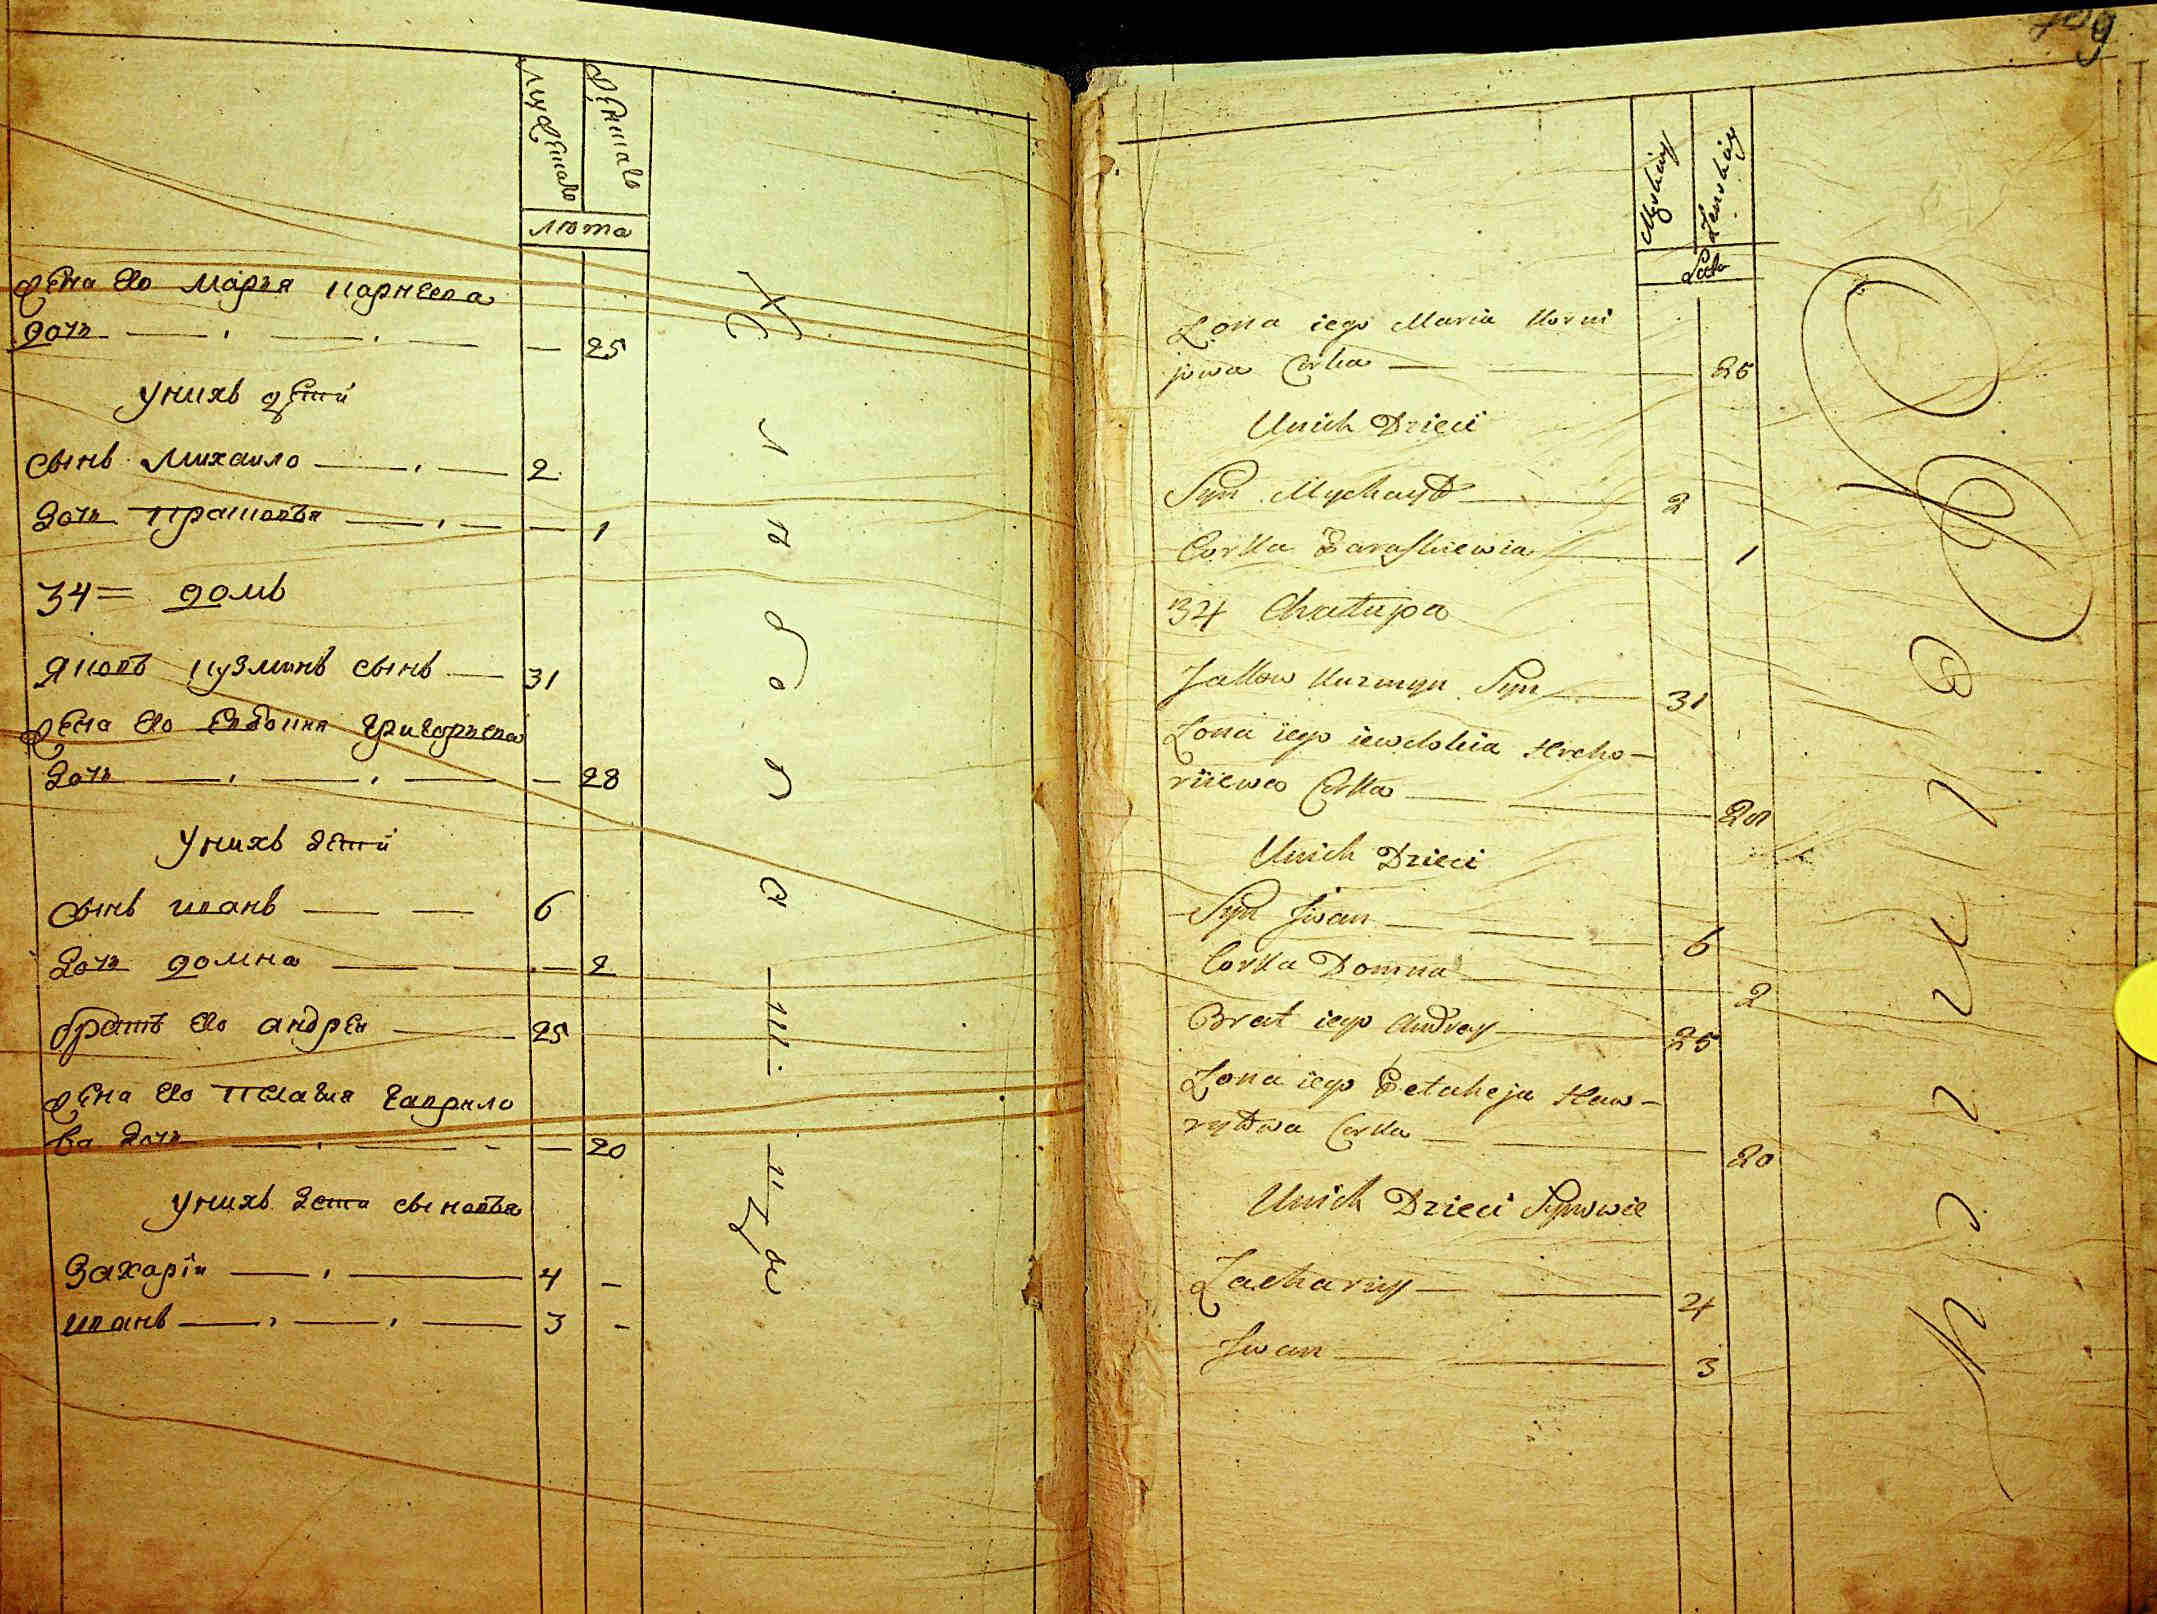 мужеска
женска
лѣта
жена его марѣя карнѣева
дочь 25
у нихъ дети
сынъ михаило 2
дочь прасковья 1
34 = домъ
яковъ кузминъ сынъ 31
жена его евдокия григорьева
дочь 28
у нихъ дети
сынъ иванъ 6
дочь домна 2
братъ его андреи 25
жена его пелагия гаврило
ва дочь 20
у нихъ дети сыновья
захаріи 4 -
иванъ 3 -
Męskiey
Żenskiey
Lata
Żona iego Maria Korni
jowa Corka 25
Unich Dzieci
Syn Mychayło 2
Corka Paraskiewia 1
34 Chałupa
Jakow Kuzmyn Syn 31
Żona iego iewdokia Hreho-
riiewa Corka 28
Unich Dzieci
Syn Jwan 6
Corka Domna 2
Brat iego Andrey 25
Żona iego Pelaheja Haw-
ryłowa Corka 20
Unich Dzieci Synowie
Zacharyy 4
Jwan 3